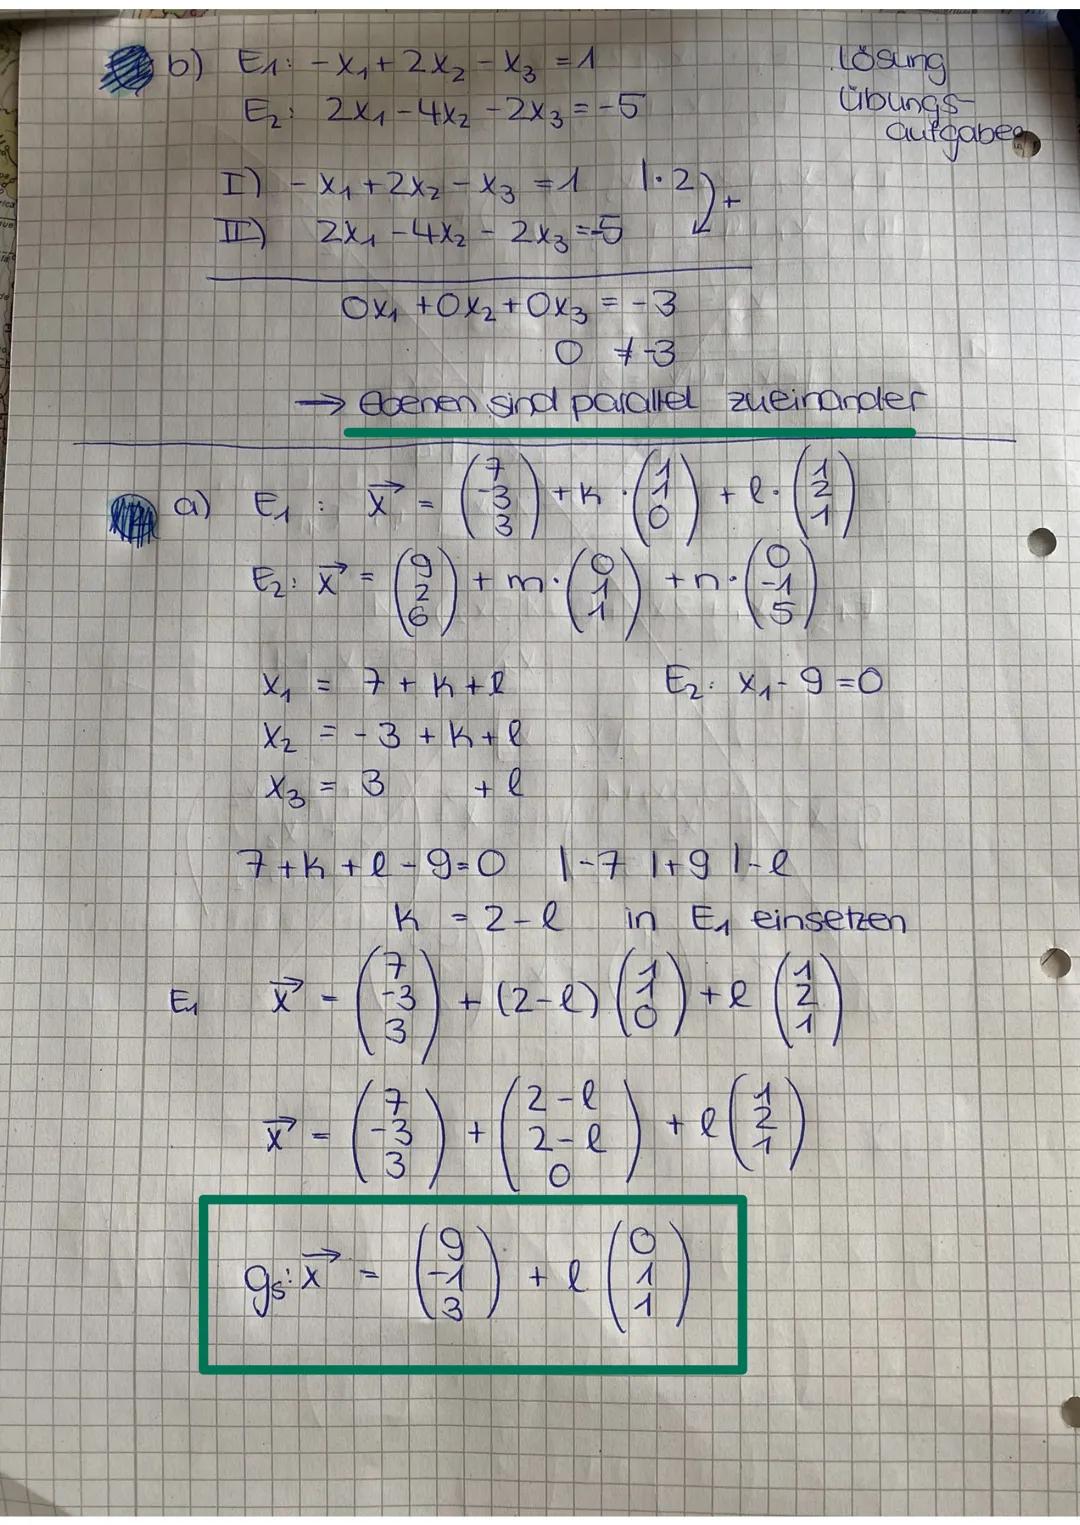 b) E₁: -x₁ + 2x₂ - x₃ = 1
Lösung
E₂: 2x₁ - 4x₂ - 2x₃ = -5
Übungs-
aufgaben
I) -x₁ + 2x₂ - x₃ = 1 |·2 +
II) 2x₁ - 4x₂ - 2x₃ = -5
0x₁ + 0x₂ + 0x₃ = -3
0 ≠ -3
→ Ebenen sind parallel zueinander
a) E₁: x⃗ = (7 -3 3) + k · (1 1 0) + l · (1 2 1)
E₂: x⃗ = (9 2 6) + m · (0 1 1) + n · (0 -1 5)
x₁ = 7 + k + l
E₂: x₁ - 9 = 0
x₂ = -3 + k + l
x₃ = 3 + l
7 + k + l - 9 = 0 |-7 |+9 |-l
k = 2 - l in E₁ einsetzen
E₁ x⃗ = (7 -3 3) + (2-l) (1 1 0) + l (1 2 1)
x⃗ = (7 -3 3) + (2-l 2-l 0) + l (1 2 1)
gs: x⃗ = (9 -1 3) + l (0 1 1)